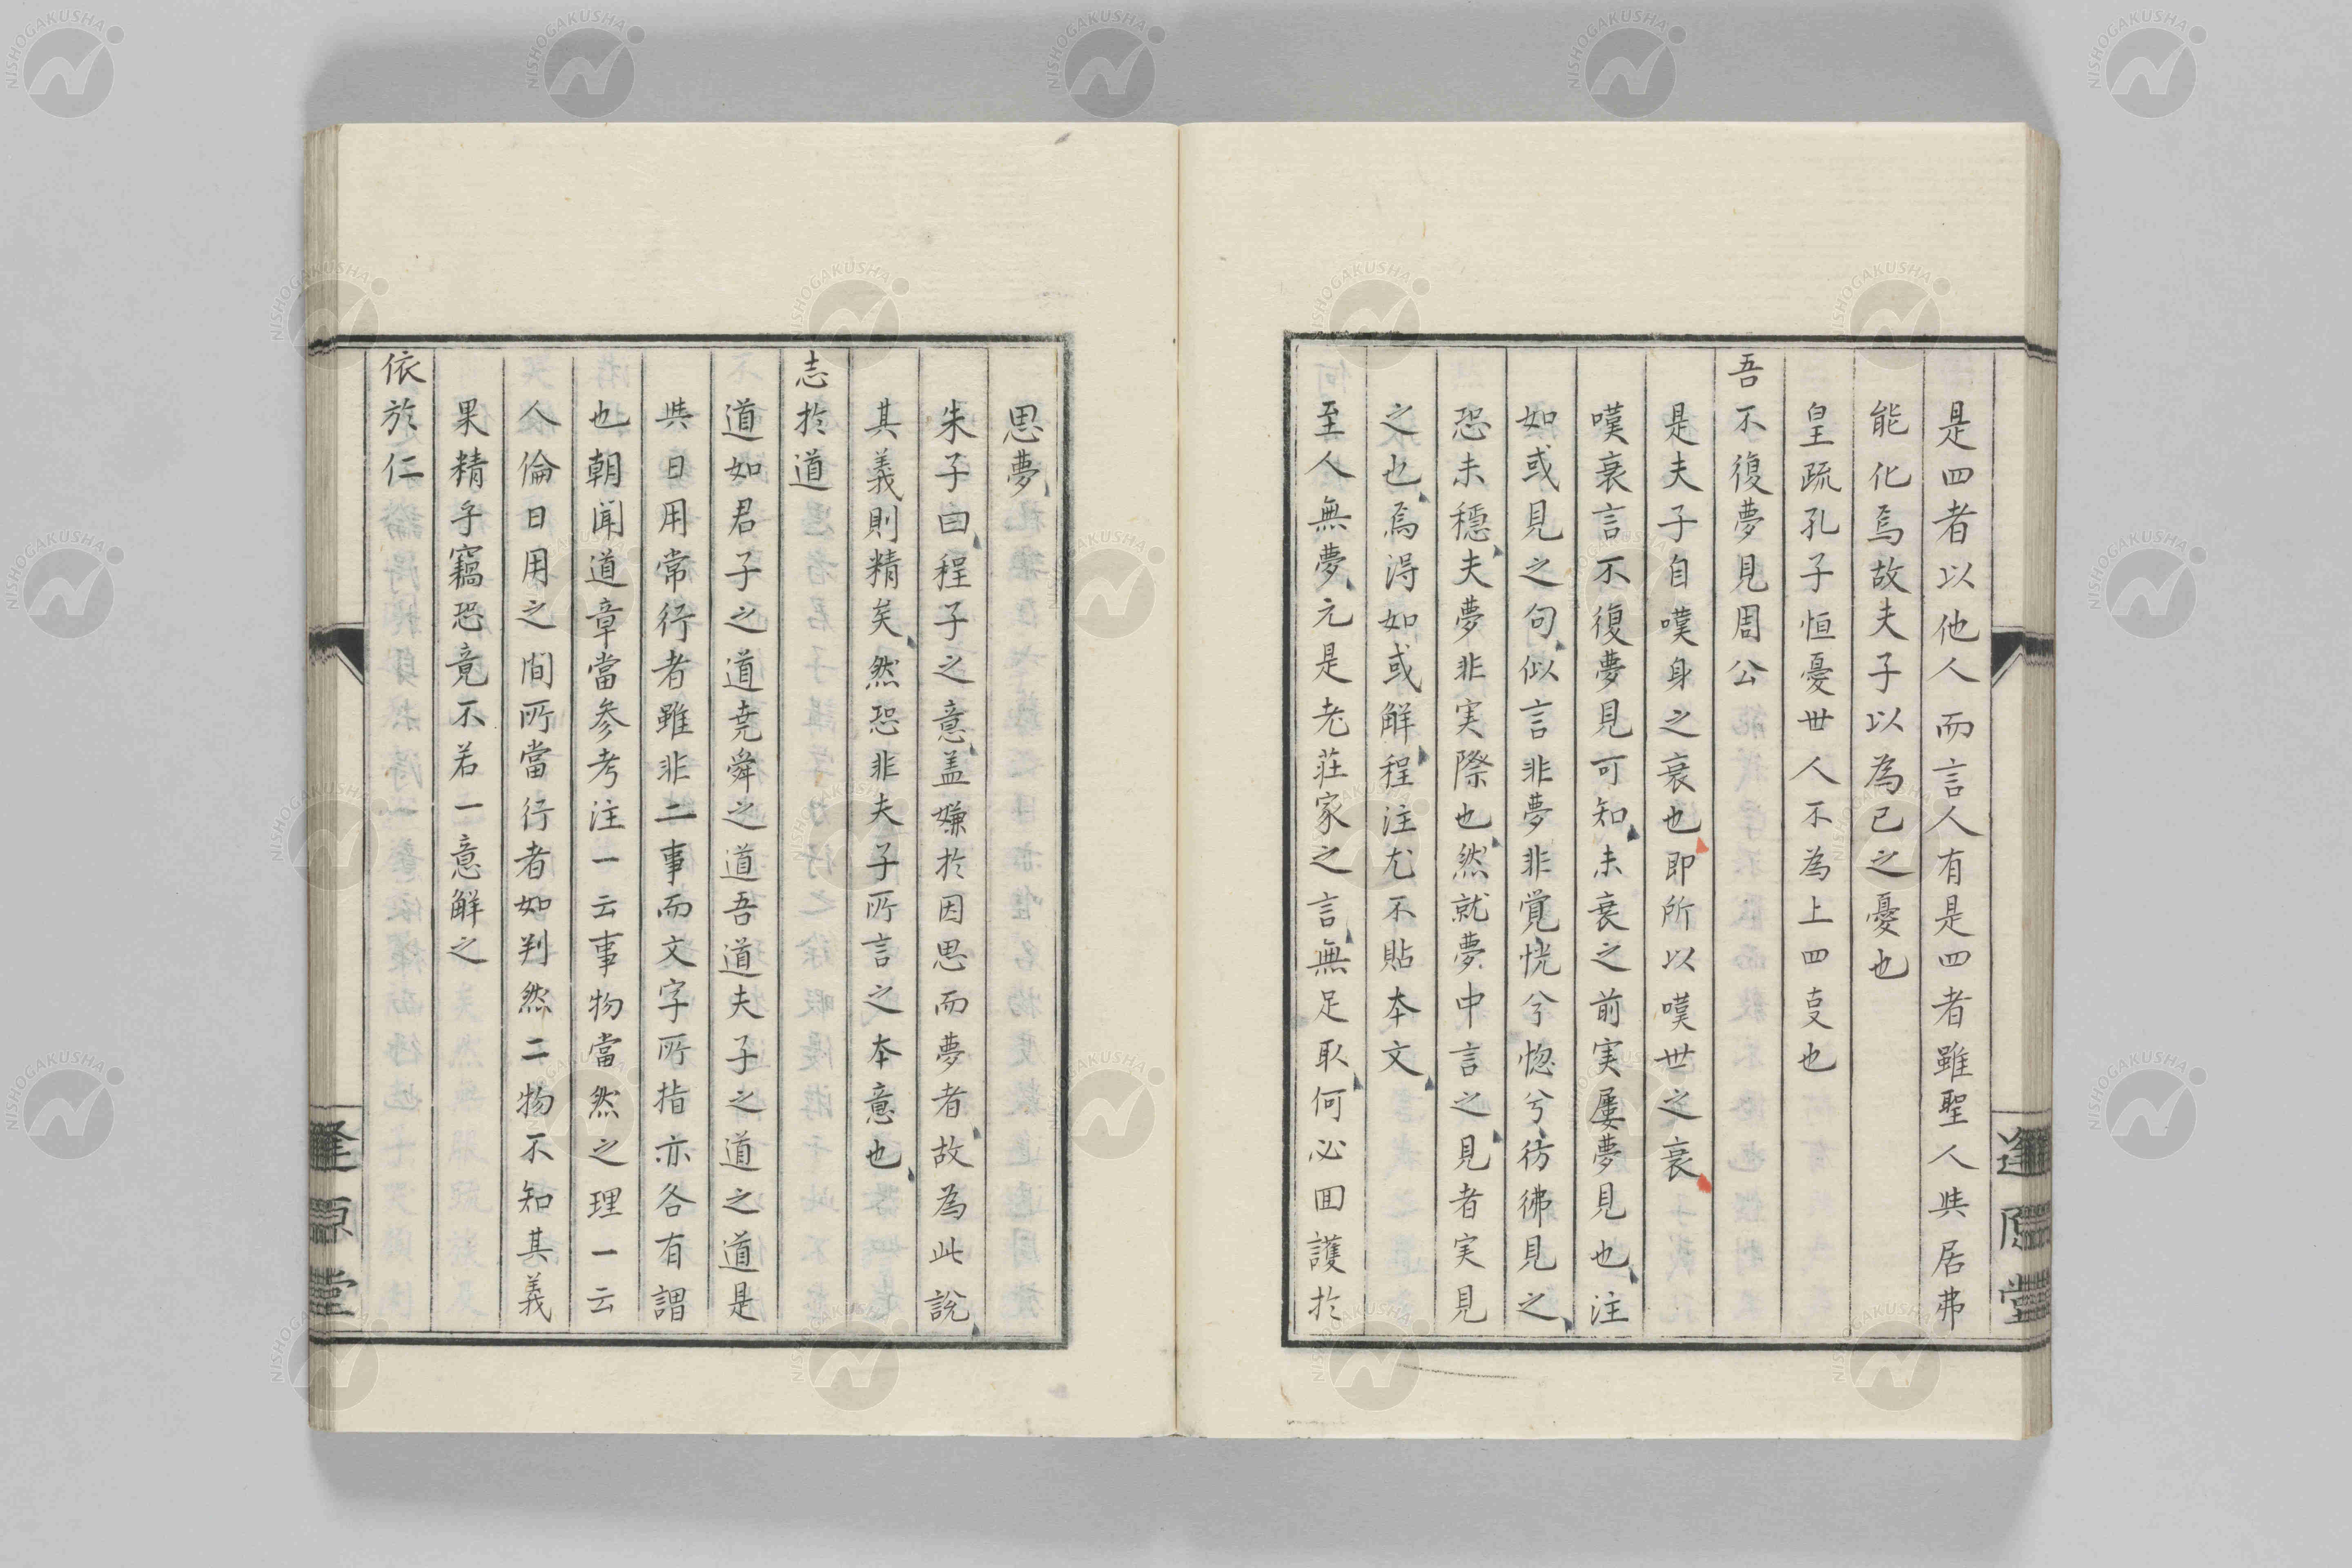 是四者以他人而言人有是四者雖聖人与居弗
能化焉故夫子以為己之憂也
皇疏孔子恒憂世人不為上四叓也
吾不復夢見周公
是夫子自嘆身之衰也即所以嘆世之衰
嘆衰言不復夢見可知未衰之前実屢夢見也注
如或見之句似言非夢非覚恍兮惚兮彷彿見之
恐未穏夫夢非実際也然就夢中言之見者実見
之也焉得如或解程注尤不貼本文
至人無夢元是老荘家之言無足取何必回護於
思夢
朱子曰程子之意盖嫌於因思而夢者故為此説
其義則精矣然恐非夫子所言之本意也
志於道
道如君子之道尭舜之道吾道夫子之道之道是
与日用常行者雖非二事而文字所指亦各有謂
也朝聞道章當参考注一云事物當然之理一云
人倫日用之間所當行者如判然二物不知其義
果精乎竊恐竟不若一意解之
依於仁
逢原堂
逢原堂
NISHOGAKUSHA